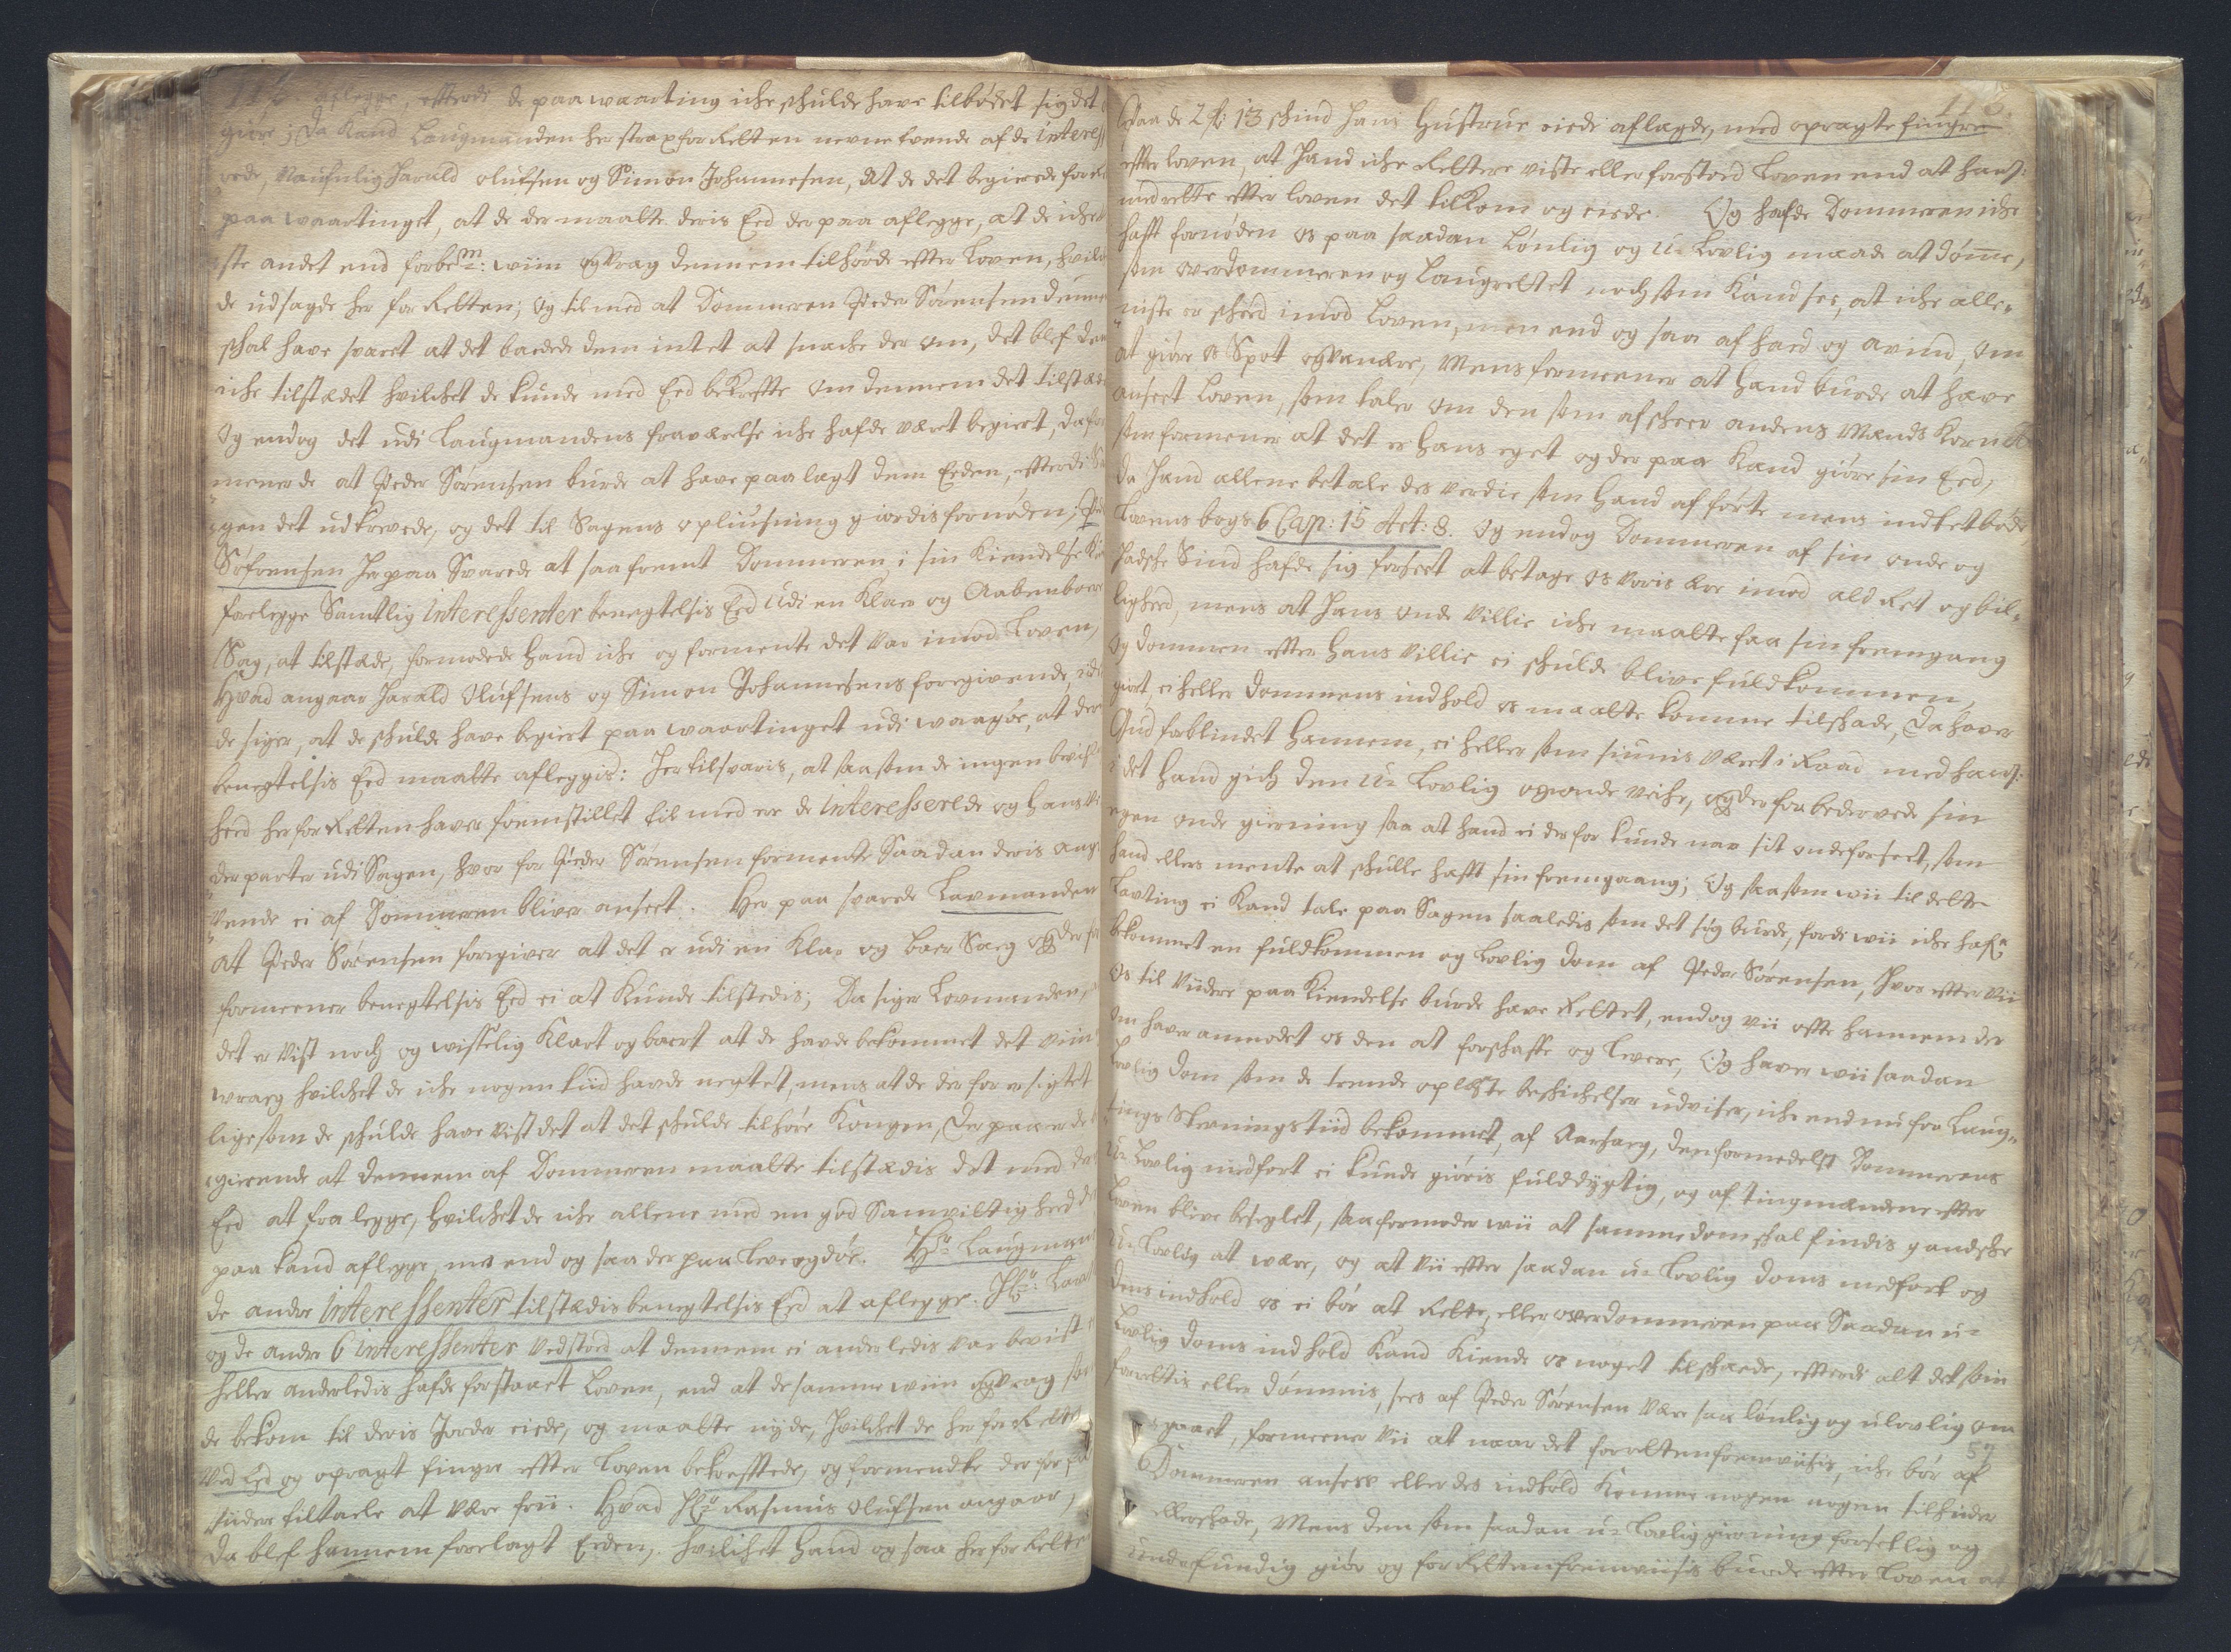 aflegge, efterdi de paa waarting iche schulde have tilbödet sig det
giöre; Da Kand Laugmanden her strax for Retten nevne tvende af de interess
rede, Naufnlig Harald olufsen og Simon Johannesen, At de det begierede for
paa waartinget, at de der maatte deris Eed der paa aflegge, at de iche
ste andet end forbem: wiin og Vrag dennem tilhörde efter Loven, hvil
de udsagde her for Retten; Og til med at Dommeren Peder Sörensen denne
schal have svaret at det baadede dem intet at snache der om, det blef dem
iche tilstædet hvilchet de kunde med Eed bekrefte om dennem det tilstæ
Og endog det udi Laugmandens fraværelse iche hafde været begiert, da for
menerde at Peder Sörensen burde at have paalagt dem Eeden, efterdi Sa
gen det udkrevede, og det til Sagens opliusning giordis fornöden; Pe
Söfrensen Her paa Svarede at saafremt Dommeren i sin Kiendelse
forelegge Samtlig interessenter benegtelsis Eed Udi en Klar og Aabenbare
Sag, at tilstæde, formodede hand iche og formente det var imod Loven,
Hvad angaar Harald Olufsens og Simon Johannesens foregivende, i de
de siger, at de schulde have begiert paa waartinget udi waagöe, at der
benegtelsis Eed maatte afleggis: Her til svaris, at saasom de ingen bevis
heed her for Retten haver fremstillet til med ere de interesserede og Hans
der parter udi Sagen, hvor for Peder Sörensen formente Saadan deris ang
vende ei af Dommeren bliver anseet. Her paa svarede Lavmanden
at Peder Sörensen foregiver at det er udi en Klar og baer Sag og der
formeener benegtelsis Eed ei at Kunde tilstedis; Da siger Lovmanden,
det er Vist noch og wisselig Klart og baert at de havde bekommet det viin
wrag hvilchet de iche nogen tiid havde negtet, mens at de der for er sigtet
lige som de schulde have vist det at det schulde tilhöre Kongen, Der paa er de
gierende at dennem af Dommeren maatte tilstædis det med
Eed at fra legge, hvilchet de iche allene med en god Samvittigheed
paa kand aflegge, men end og saa der paa Leve og döe. Laugman
de andre interessenter tilstædis benegtelsis Eed at aflegge.
og de andre 6 interessenter Vedstoed at dennem ei anderledis var bevist
heller anderledis hafde forstaaet Loven, end at de samme wiin og Vrag
de bekom til deris Jorder eiede, og maatte nyde, Hvilchet de her for Rette
Ved Eed og opragt fingre efter Loven bekreftede, og formendte der for
viidere tiltaele at være frii. Hvad Rasmus Olufsen angaar,
Da blef hannem forelagt Eeden, hvilchet Hand og saa her for Rette
Paa de 2 13 schind Hans Hustrue eiede aflagde, med opragte fingre
efter loven, at Hand iche Rettere viste eller forstoed Loven end at
med rette efter loven det tilkom og eiede. Og hafde Dommeren iche
haft fornöden os paa saadan Lönlig og U-Lovlig maade at dömme,
som overdommeren og Laugrettet noch som Kand see, at iche alle-
niste er scheed imod Loven, men end og saa af had og avind, Om
at giöre os Spot og Vanære, Mens formeener at Hand burde at have
anseet Loven, som taler om den som afscher andens Mands Korn
som formener at det er hans eget og der paa Kand giöre sin Eed,
da Hand allene betale des verdie som Hand af förte mens indtet böde
Lovens bogs 6 Cap: 15 Art: 8. Og endog Dommeren af sin onde og
Hadsche Sind hafde sig forseet at betage os voris ære imod ald Ret og bil-
ligheed, mens at Hans onde Villie iche maatte faa sin fremgang
Og dommen efter Hans Villie ei schulde blive fuldkommen
giort, ei heller dommens indhold os maatte komme til schade, Da haver
Gud forblindet Hannem, ei heller som siunis været i Raad med
i det Hand gich den U-Lovlig og onde Veihe, og derfor bedervede sin
egen onde gierning saa at hand ei der for kunde naa sit ondeforseet, som
hand ellers mente at schulle haft sin fremgaang; Og saasom wii til dette
Lavting ei Kand tale paa Sagen saaledis som det sig burde, fordi wii iche hafr
bekommet en fuldkommen og Lovlig dom af Peder Sörensen, Hvor efter Vii
os til Viidere paa Kiendelse burde have Rettet, endog vii ofte hannem der
om haver anmodet os den at forschaffe og levere, Og haver wii saadan
Lovlig dom som de trende oplæste beschichelser udviser, iche end nu for Laug-
tings Stevningstiid bekommet, af Aarsag, den formedelst Dommerens
U-Lovlig medfart ei kunde giöris fulddygtig, og af tingmændene efter
Loven blive beseylet, saa formoder wii at samme dom schal findis gandsche
U-Lovlig at være, og at Vii efter saadan U-Lovlig doms medfart og
dens indhold os ei bör at Rette, eller overdommeren paa Saadan u-
Lovlig doms indhold Kand Kiende os noget til schaede, efterdi alt det som
forrettis eller dömmis, sees af Peder Sörensen Være saa lönlig og ulovlig om
gaaet, formeener Vii at naar det for Retten fremviisis, iche bör af
Dommeren ansees eller des indhold Komme nogen til hinder
eller schade, Mens den som saadan U-Lovlig gierning forsetlig og
underfundig giör og for Retten fremviisis burde efter Loven at
57